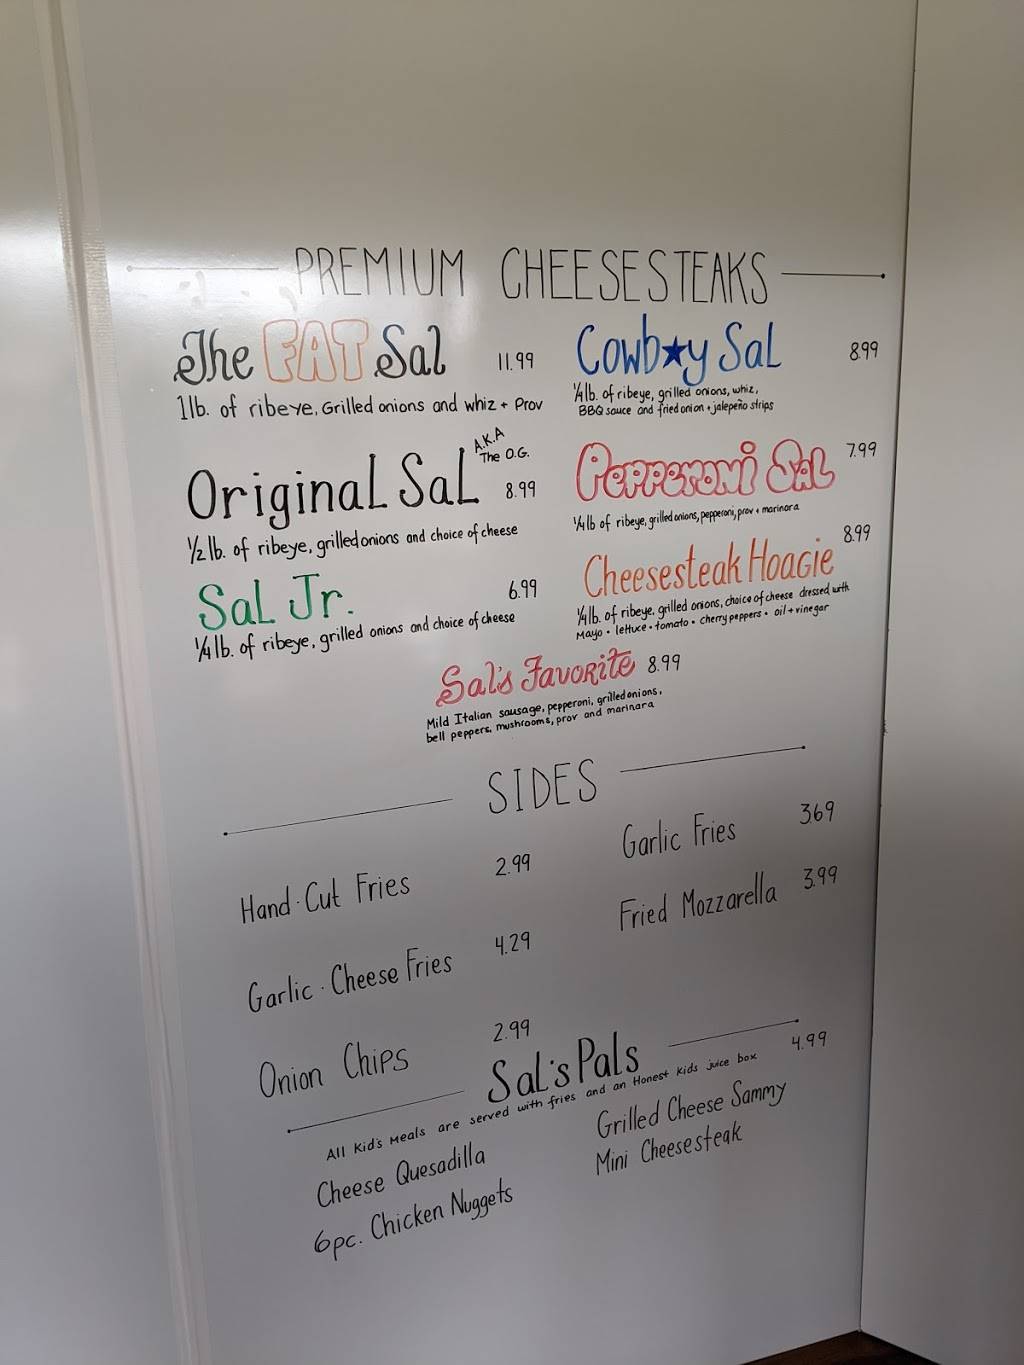 PREMIUM CHEESESTEAKS
The FAT Sal 11.99
1lb. of ribeye, Grilled onions and whiz + Prov
Original Sal A.K.A The O.G. 8.99
1/2 lb. of ribeye, grilled onions and choice of cheese
Sal Jr. 6.99
1/4 lb. of ribeye, grilled onions and choice of cheese
Cowb★y Sal 8.99
1/4 lb. of ribeye, grilled onions, whiz,
BBQ sauce and fried onion + jalepeño strips
Pepperoni Sal 7.99
1/4 lb of ribeye, grilled onions, pepperoni, prov + marinara
Cheesesteak Hoagie 8.99
1/4 lb. of ribeye, grilled onions, choice of cheese dressed with
Mayo • lettuce • tomato • cherry peppers • oil + vinegar
Sal's Favorite 8.99
Mild Italian sausage, pepperoni, grilled onions,
bell peppers, mushrooms, prov and marinara
SIDES
Hand-Cut Fries 2.99
Garlic Fries 3.69
Garlic - Cheese Fries 4.29
Fried Mozzarella 3.99
Onion Chips 2.99
Sal's Pals 4.99
All Kid's Meals are served with fries and an Honest Kids juice box
Cheese Quesadilla
6pc. Chicken Nuggets
Grilled Cheese Sammy
Mini Cheesesteak